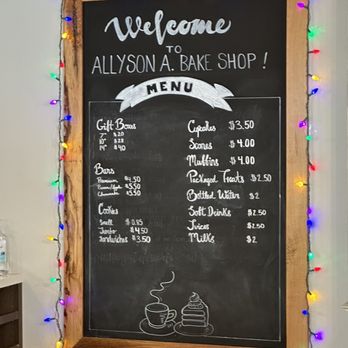 Welcome
TO
ALLYSON A. BAKE SHOP!
MENU
Gift Boxes
7" $20
10" $28
14" $40
Bars
Premium $4.50
$5.50
Cheesecake $5.50
Cookies
Small $0.85
Jumbo $4.50
Sandwiches $3.50
Cupcakes $3.50
Scones $4.00
Muffins $4.00
Packaged Treats $2.50
Bottled Water $2
Soft Drinks $2.50
Juices $2.50
Milks $2